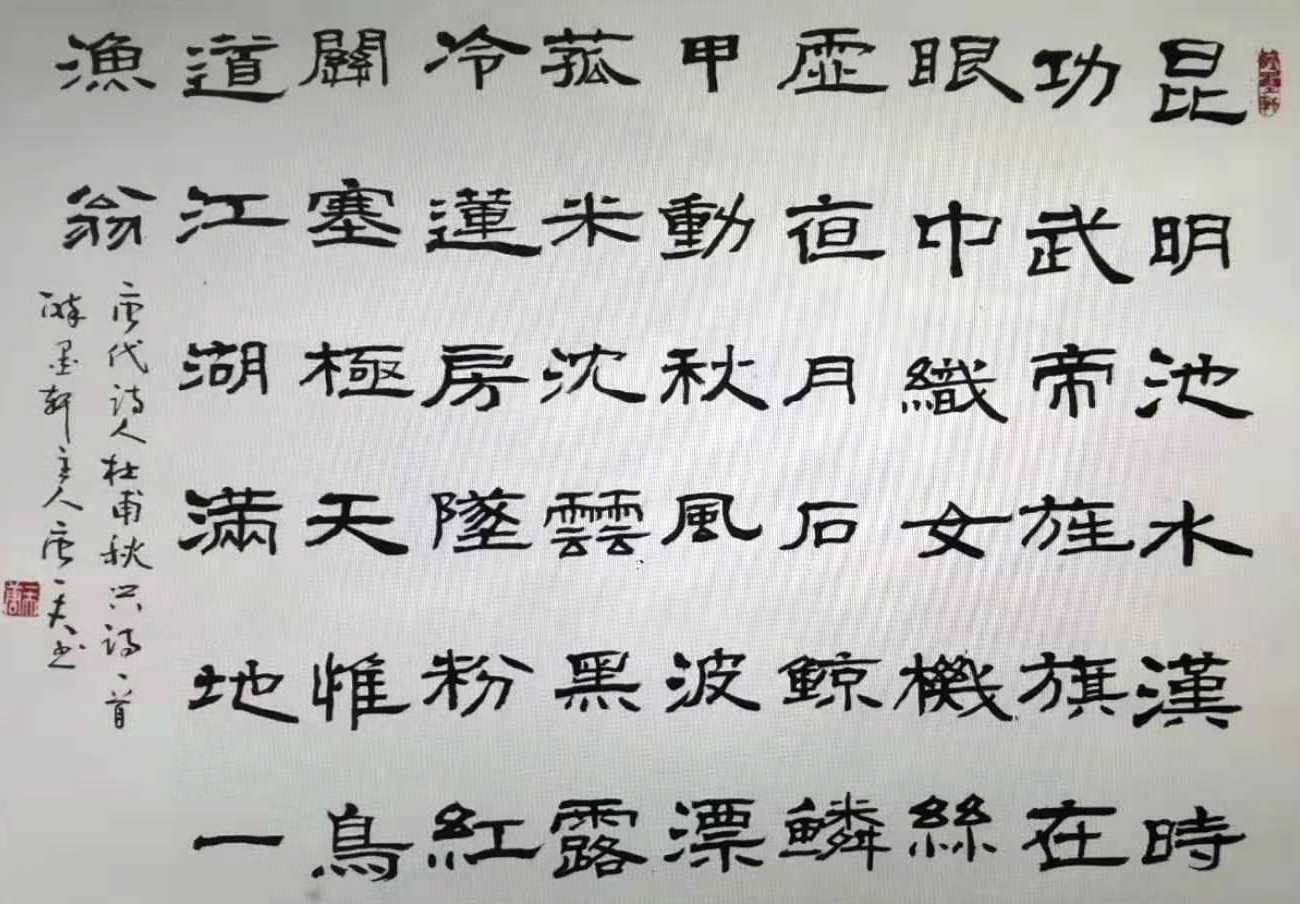 昆明池水漢時
功武帝旌旗在
眼中織女機絲
虛夜月石鯨鱗
甲動秋風波漂
菰米沈雲黑露
冷蓮房墜粉紅
關塞極天惟鳥
道江湖滿地一
漁翁
唐代詩人杜甫秋兴詩一首
墨軒主人唐一夫书